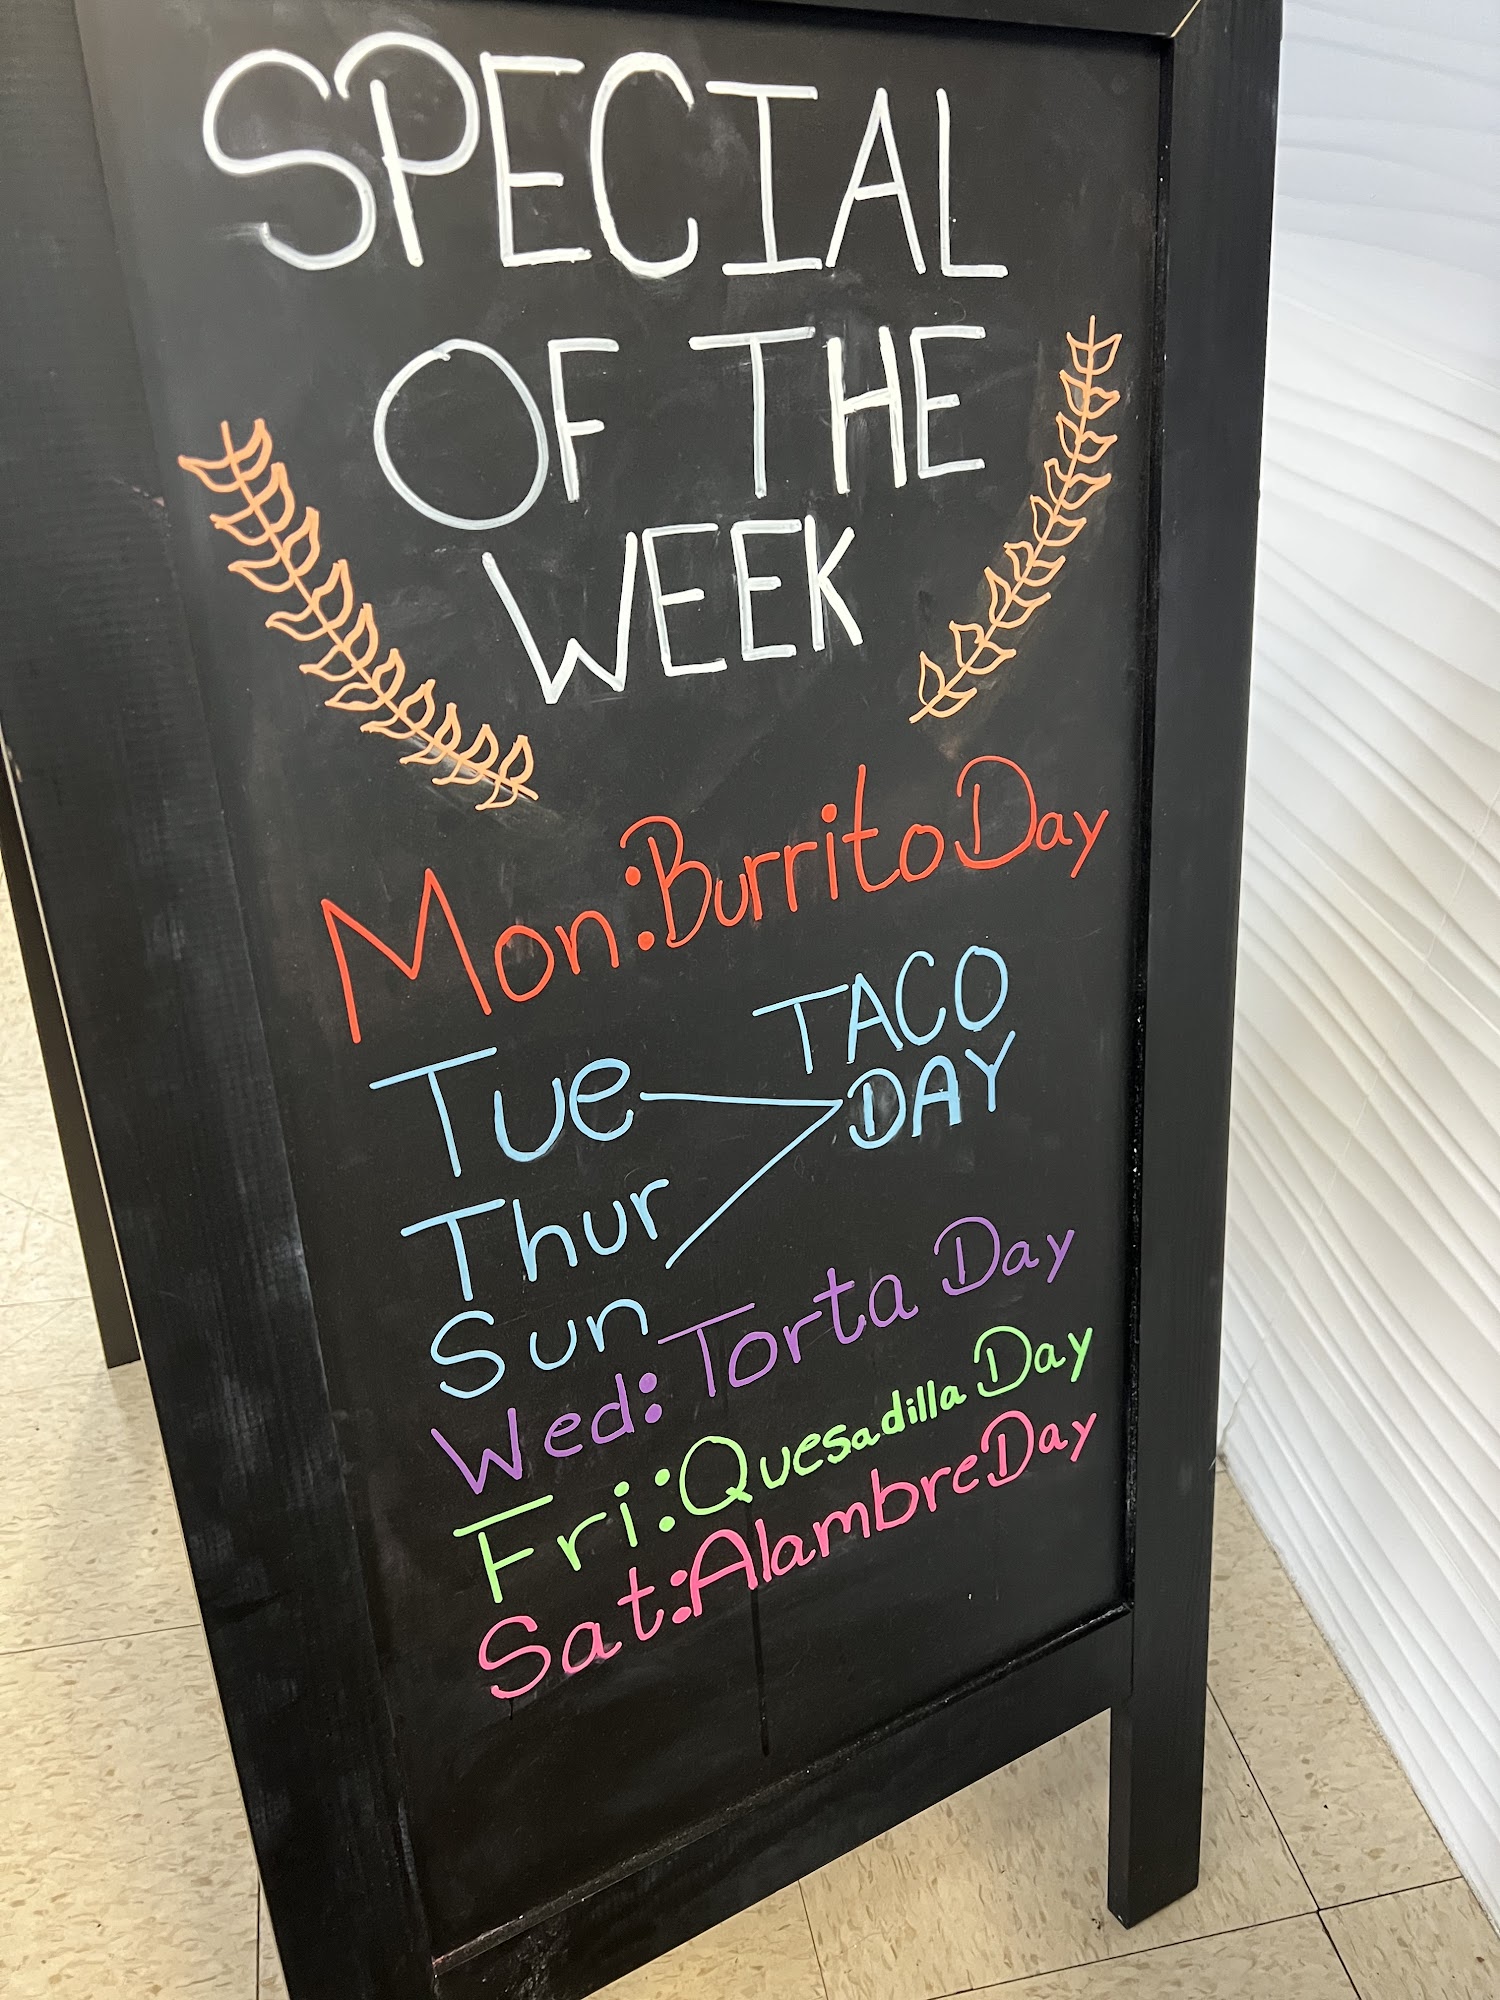 SPECIAL
OF THE
WEEK
Mon: Burrito Day
Tue
TACO
DAY
Thur
Sun
Wed: Torta Day
Fri: Quesadilla Day
Sat: Alambre Day